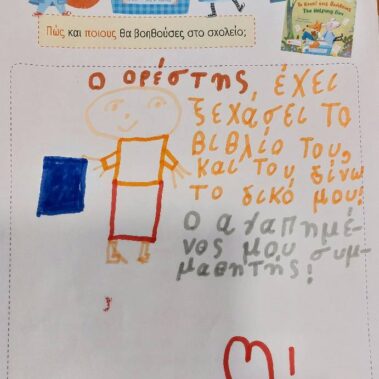 Πώς και ποιους θα βοηθούσες στο σχολείο;
The Helping Box
Ο ΟΡέστης, έχει
ξεχάσει το
βιβλίο του,
και του δίνω
το δικό μου!
Ο αγαπημέ-
νος μου συμ-
μαθητής!